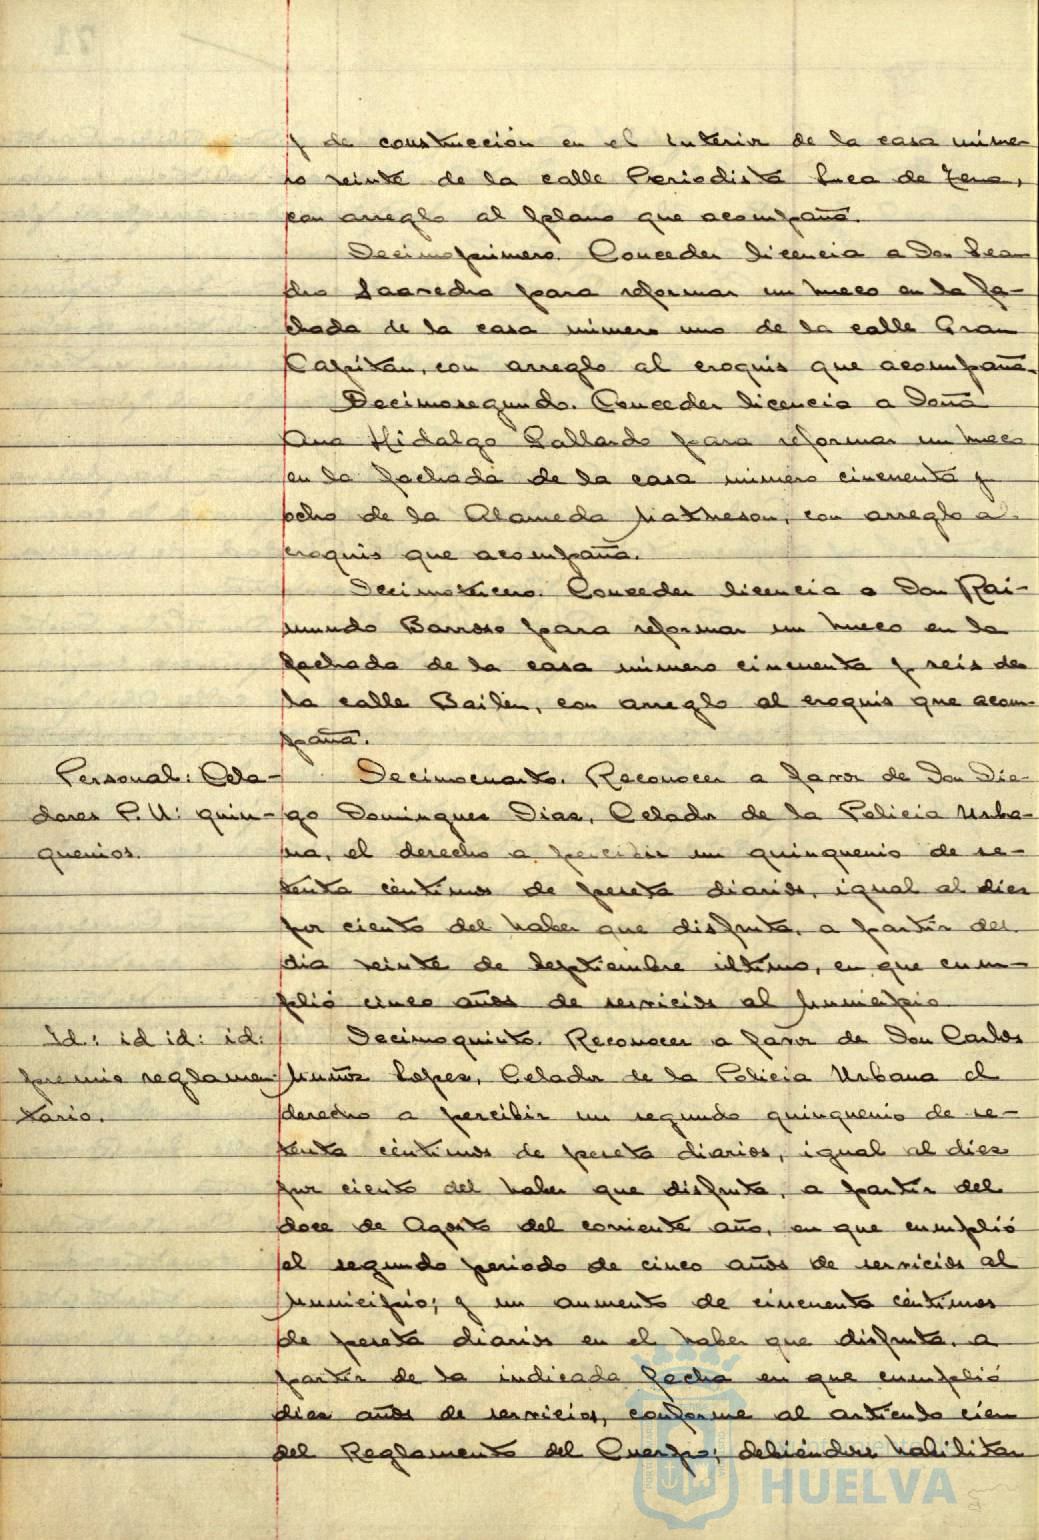 y de construcción en el interior de la casa núme-
ro veinte de la calle Periodista Luca de Tena,
con arreglo al plano que acompaña.
Decimoprimero. Conceder licencia a Don Lean-
dro Saavedra para reformar un hueco en la fa-
chada de la casa número uno de la calle Gran
Capitan, con arreglo al croquis que acompaña.
Decimosegundo. Conceder licencia a Doña
Ana Hidalgo Gallardo para reformar un hueco
en la fachada de la casa número cincuenta y
ocho de la Alameda Matheson, con arreglo al
croquis que acompaña.
Decimotercero. Conceder licencia a Don Rai-
mundo Barroso para reformar un hueco en la
fachada de la casa número cincuenta y seis de
la calle Bailén, con arreglo al croquis que acom-
paña.
Personal: Cela-
dores P. U: quin-
quenios.
Decimocuarto. Reconocer a favor de Don Die-
go Domingues Dias, Celador de la Policia Urba-
na, el derecho a percibir un quinquenio de se-
tenta céntimos de peseta diarios, igual al diez
por ciento del haber que disfruta, a partir del
dia veinte de Septiembre último, en que cum-
plió cinco años de servicios al Municipio.
Id: id id: id:
premio reglamen-
tario.
Decimoquinto. Reconocer a favor de Don Carlos
Muñoz Lopez, Celador de la Policia Urbana el
derecho a percibir un segundo quinquenio de se-
tenta céntimos de peseta diarios, igual al diez
por ciento del haber que disfruta, a partir del
doce de Agosto del corriente año, en que cumplió
el segundo periodo de cinco años de servicios al
Municipio; y un aumento de cincuenta céntimos
de peseta diarios en el haber que disfruta, a
partir de la indicada fecha en que cumplió
diez años de servicios, conforme al articulo cien
del Reglamento del Cuerpo; debiéndose habilitar
HUELVA